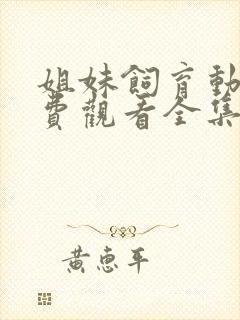 姐妹飼育動
費觀看全集
黃惠平